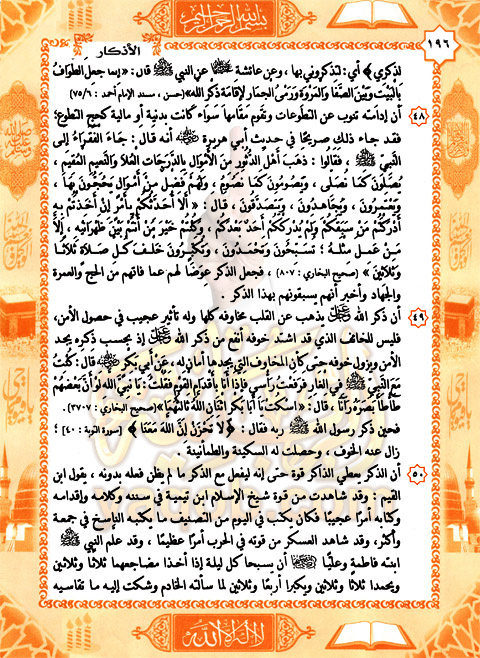 بسم الله الرحمن الرحيم
١٩٦
الأذكار
لذكري ﴾ أي : لتذكروني بها ، وعن عائشة عن النبي ﷺ قال : « إنما جعل الطواف
بالبيت وبين الصفا والمروة ورمي الجمار لإقامة ذكر الله »(حسن ، مسند الإمام أحمد : ٧٥/٦)
٤٨ أن إدامته تنوب عن التطوعات وتقوم مقامها سواء كانت بدنية أو مالية كحج التطوع؛
فقد جاء ذلك صريحًا في حديث أبي هريرة أنه قال : جَاءَ الفُقَرَاءُ إلى
النَّبِيِّ ﷺ ، فَقَالُوا : ذَهَبَ أَهْلُ الدُّثُورِ مِنَ الأَمْوَالِ بِالدَّرَجَاتِ العُلَا وَالنَّعِيمِ المُقِيمِ ،
يُصَلُّونَ كَمَا نُصَلِّي ، وَيَصُومُونَ كَمَا نَصُومُ ، وَلَهُمْ فَضْلٌ مِنْ أَمْوَالٍ يَحُجُّونَ بِهَا ،
وَيَعْتَمِرُونَ ، وَيُجَاهِدُونَ ، وَيَتَصَدَّقُونَ ، قال : « أَلَا أُحَدِّثُكُمْ بِأَمْرٍ إِنْ أَخَذْتُمْ بِهِ
أَدْرَكْتُمْ مَنْ سَبَقَكُمْ وَلَمْ يُدْرِكْكُمْ أَحَدٌ بَعْدَكُمْ ، وَكُنْتُمْ خَيْرَ مَنْ أَنْتُمْ بَيْنَ ظَهْرَانَيْهِ ، إِلَّا
مَنْ عَمِلَ مِثْلَهُ ؛ تُسَبِّحُونَ وَتَحْمَدُونَ ، وَتُكَبِّرُونَ خَلْفَ كُلِّ صَلَاةٍ ثَلَاثًا
وَثَلَاثِينَ » (صحيح البخاري : ٨٠٧) ، فجعل الذكر عوضًا لهم عما فاتهم من الحج والعمرة
والجهاد وأخبر أنهم يسبقونهم بهذا الذكر .
٤٩ أن ذكر الله يذهب عن القلب مخاوفه كلها وله تأثير عجيب في حصول الأمن،
فليس للخائف الذي قد اشتد خوفه أنفع من ذكر الله إذ بحسب ذكره يجد
الأمن ويزول خوفه حتى كأن المخاوف التي يجدها أمان له ، عَنْ أَبِي بَكْرٍ قَالَ : كُنْتُ
مَعَ النَّبِيِّ ﷺ في الغار فرفعت رأسي فإذا أنا بأقدام القوم فقلت : يا نبي الله لو أن بعضهم
طأطأ بصره رآنا ، قال : « اسكت يا أبا بكر اثنان الله ثالثهما »(صحيح البخاري : ٣٧٠٧)
فحين ذكر رسول الله ﷺ ربه فقال : ﴿ لَا تَحْزَنْ إِنَّ اللَّهَ مَعَنَا ﴾ [سورة التوبة : ٤٠] ؛
زال عنه الخوف ، وحصلت له السكينة والطمأنينة .
٥٠ أن الذكر يعطي الذاكر قوة حتى إنه ليفعل مع الذكر ما لم يظن فعله بدونه ، يقول ابن
القيم : وقد شاهدت من قوة شيخ الإسلام ابن تيمية في سننه وكلامه وإقدامه
وكتابه أمرًا عجيبًا فكان يكتب في اليوم من التصنيف ما يكتبه الناسخ في جمعة
وأكثر، وقد شاهد العسكر من قوته في الحرب أمرًا عظيمًا ، وقد علم النبي ﷺ
ابنته فاطمة وعليًّا أن يسبحا كل ليلة إذا أخذا مضاجعهما ثلاثًا وثلاثين
ويحمدا ثلاثًا وثلاثين ويكبرا أربعًا وثلاثين لما سألته الخادم وشكت إليه ما تقاسيه
لا إله إلا الله